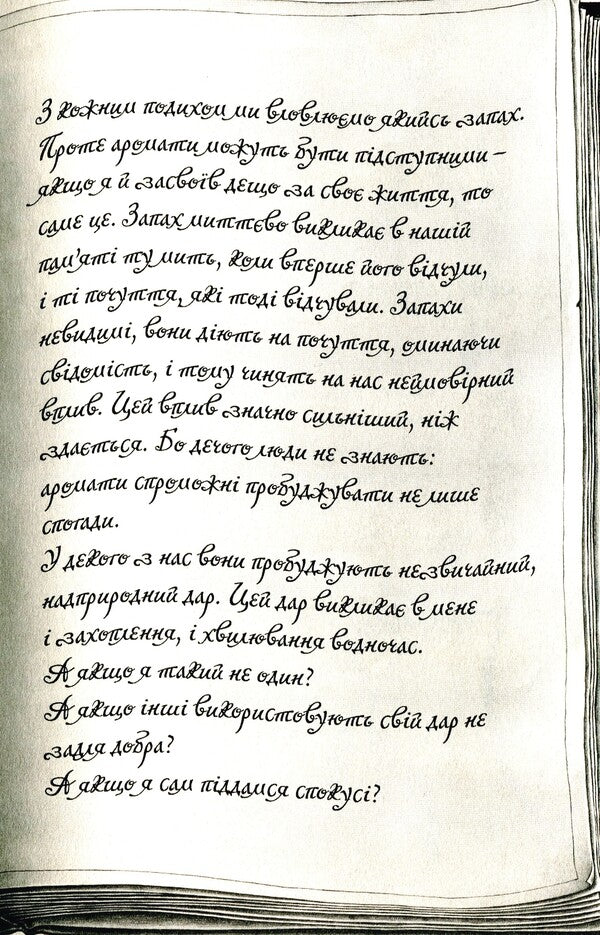 З кожним подихом ми вловлюємо якийсь запах.
Проте аромати можуть бути підступними –
якщо я й засвоїв дещо за своє життя, то
саме це. Запах миттєво викликає в нашій
пам'яті ту мить, коли вперше його відчули,
і ті почуття, які тоді відчували. Запахи
невидимі, вони діють на почуття, оминаючи
свідомість, і тому чинять на нас неймовірний
вплив. Цей вплив значно сильніший, ніж
здається. Бо дечого люди не знають:
аромати спроможні пробуджувати не лише
спогади.
У декого з нас вони пробуджують незвичайний,
надприродний дар. Цей дар викликає в мене
і захоплення, і хвилювання водночас.
А якщо я такий не один?
А якщо інші використовують свій дар не
задля добра?
А якщо я сам піддамся спокусі?